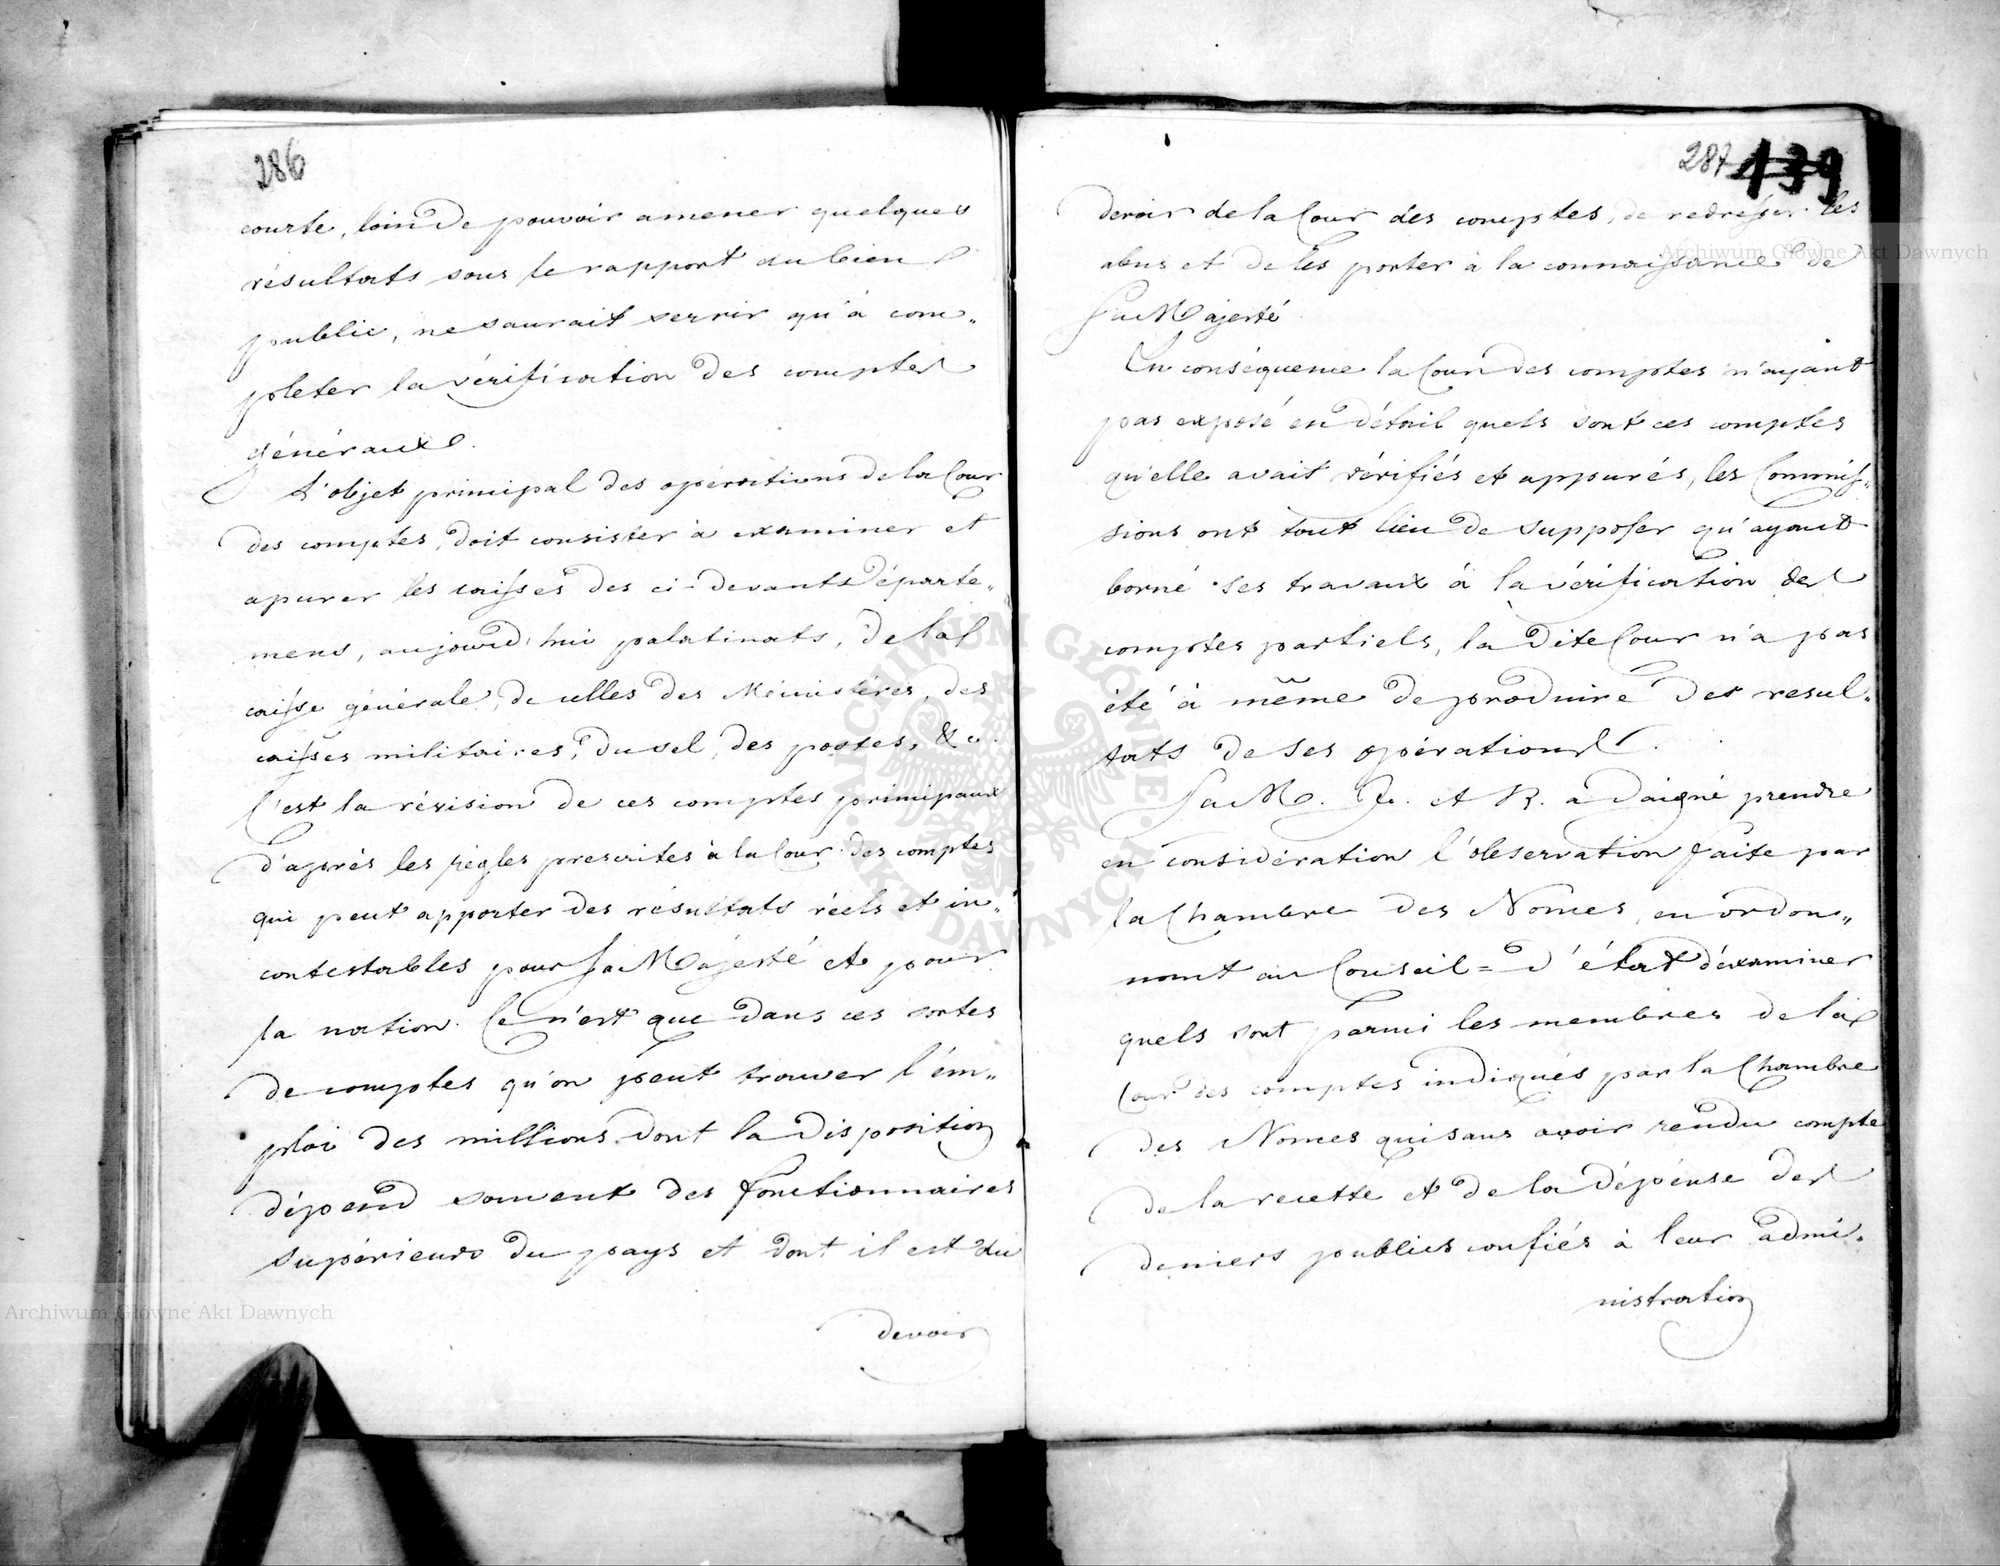 286
courte, loin de pouvoir amener quelques
résultats sous le rapport du bien
public, ne saurait servir qu'à com„
pleter la vérification des comptes
généraux.
L'objet principal des opérations de la Cour
des comptes, doit consister à examiner et
apurer les caisses des ci-devants Départe„
mens, aujourd'hui palatinats, de la
caisse générale, de celles des Ministères, des
caisses militaires, du sel, des postes, &c.
C'est la révision de ces comptes principaux
d'après les règles prescrites à la Cour des comptes
qui peut apporter des résultats réels et in„
contestables pour Sa Majesté et pour
la nation. Ce n'est que dans ces sortes
de comptes qu'on peut trouver l'ém„
ploi des millions dont la disposition
dépend souvent des fonctionnaires
supérieurs du pays et dont il est du
devoir
287 139
devoir de la Cour des comptes, de redresser les
abus et de les porter à la connaissance de
Sa Majesté.
En conséquence la Cour des comptes n'ayant
pas exposé en détail quels sont ces comptes
qu'elle avait vérifiés et appurés, les Commis„
sions ont tout lieu de supposer qu'ayant
borné ses travaux à la vérification des
comptes partiels, la dite Cour n'a pas
été à même de produire des resul„
tats de ses opérations.
Sa M. I. et R. a daigné prendre
en considération l'observation faite par
la Chambre des Nonces, en ordon„
nant au Conseil=d'état d'éxaminer
quels sont parmi les membres de la
Cour des comptes indiqués par la Chambre
des Nonces qui sans avoir rendu compte
de la recette et de la dépense des
deniers publics confiés à leur admi„
nistration
Archiwum Główne Akt Dawnych
Archiwum Główne Akt Dawnych
ARCHIWUM GŁÓWNE AKT DAWNYCH